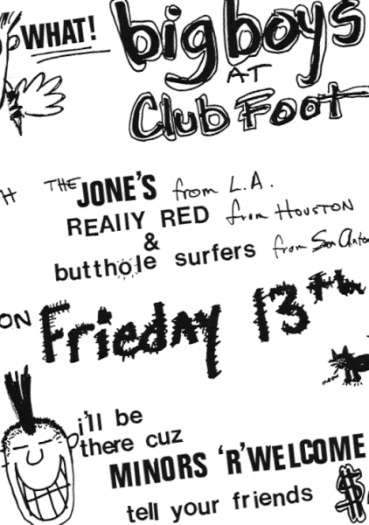 WHAT!
big boys
AT
Club Foot
THE JONE'S from L.A.
REAllY RED from HOUSTON
&
butthole surfers from San Anto
ON Frieday 13th
i'll be
there cuz
MINORS 'R' WELCOME
tell your friends
$